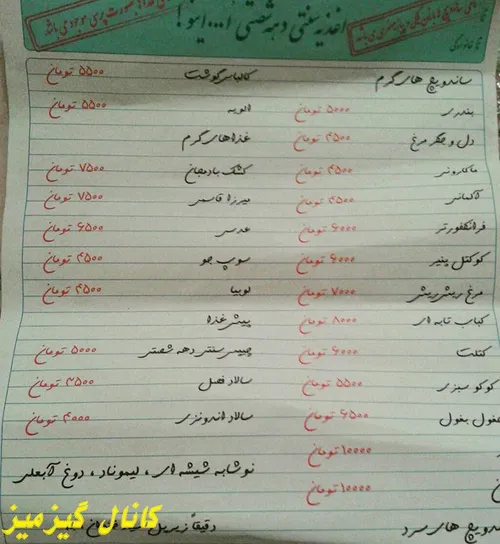 اغذیه سنتی دهه شصتی
ساندویچ های گرم
بندری ۵۰۰۰ تومان
دل و جگر مرغ ۴۵۰۰ تومان
ماکارونی ۴۵۰۰ تومان
آلمانی ۴۵۰۰ تومان
فرانکفورتر ۶۰۰۰ تومان
کوکتل پنیر ۶۰۰۰ تومان
مرغ ریش ریش ۷۰۰۰ تومان
کباب تابه ای ۸۰۰۰ تومان
کتلت ۶۰۰۰ تومان
کوکو سبزی ۵۵۰۰ تومان
۶۵۰۰ تومان
۱۰۰۰۰ تومان
۱۰۰۰۰ تومان
های سرد
کالباس گوشت ۵۵۰۰ تومان
الویه ۵۵۰۰ تومان
غذاهای گرم
کشک بادمجان ۷۵۰۰ تومان
میرزا قاسمی ۷۵۰۰ تومان
عدسی ۶۵۰۰ تومان
سوپ جو ۴۵۰۰ تومان
لوبیا ۴۵۰۰ تومان
پیش غذا
چیپس سنتی دهه شصتی ۵۰۰۰ تومان
سالاد فصل ۳۵۰۰ تومان
سالاد اندونزی ۴۰۰۰ تومان
نوشابه شیشه ای ، لیموناد ، دوغ آبعلی
کانال گیزمیز